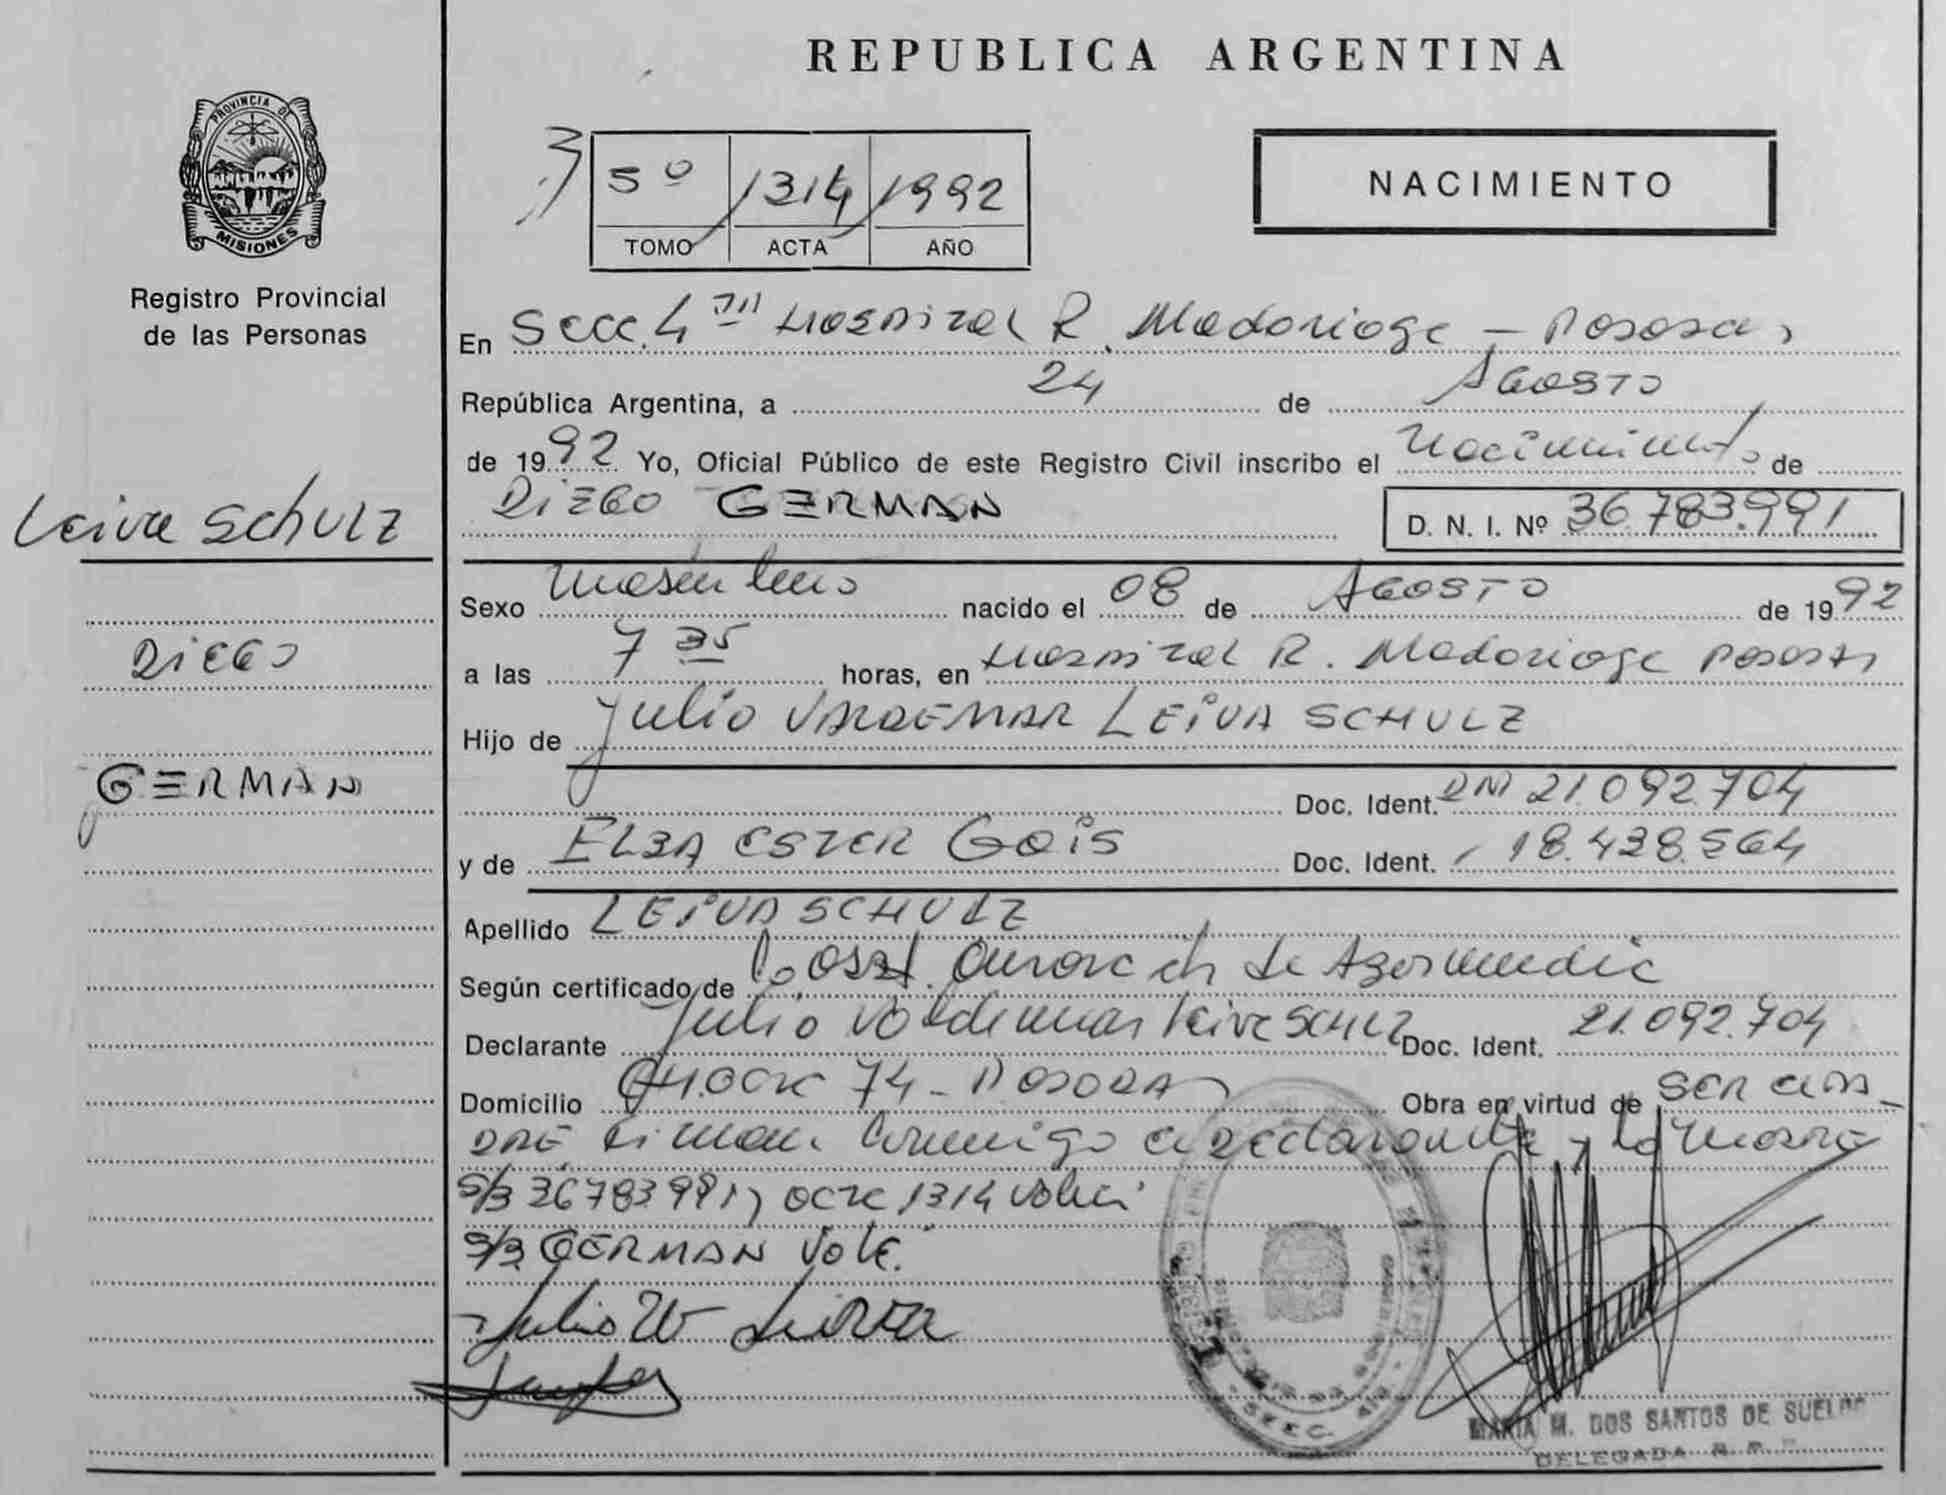 REPUBLICA ARGENTINA
PROVINCIA DE
MISIONES
Registro Provincial
de las Personas
5º 1314 1992
TOMO ACTA AÑO
NACIMIENTO
En Secc. 4 Hospital R. Madariaga - Posadas
República Argentina, a 24 de Agosto
de 1992 Yo, Oficial Público de este Registro Civil inscribo el Nacimiento de
DIEGO GERMAN
D. N. I. Nº 36.783.991
Leiva Schulz
DIEGO
GERMAN
Sexo Masculino nacido el 08 de Agosto de 1992
a las 7 35 horas, en Hospital R. Madariaga Posadas
Hijo de Julio VALDEMAR LEIVA SCHULZ
Doc. Ident. DNI 21.092.704
y de ELBA ESTER Gois Doc. Ident. 18.438.564
Apellido LEIVA SCHULZ
Según certificado de Obst. de
Declarante Julio Valdemar Leiva Schulz Doc. Ident. 21.092.704
Domicilio 74 - POSADAS Obra en virtud de ser el PA-
DRE, firman conmigo el declarante y la
S/B 36783991, acta 1314 vale
S/B GERMAN Vale.
Julio W Leiva
SECC. 4ta
MARIA M. DOS SANTOS DE SUELDO
DELEGADA R. P.